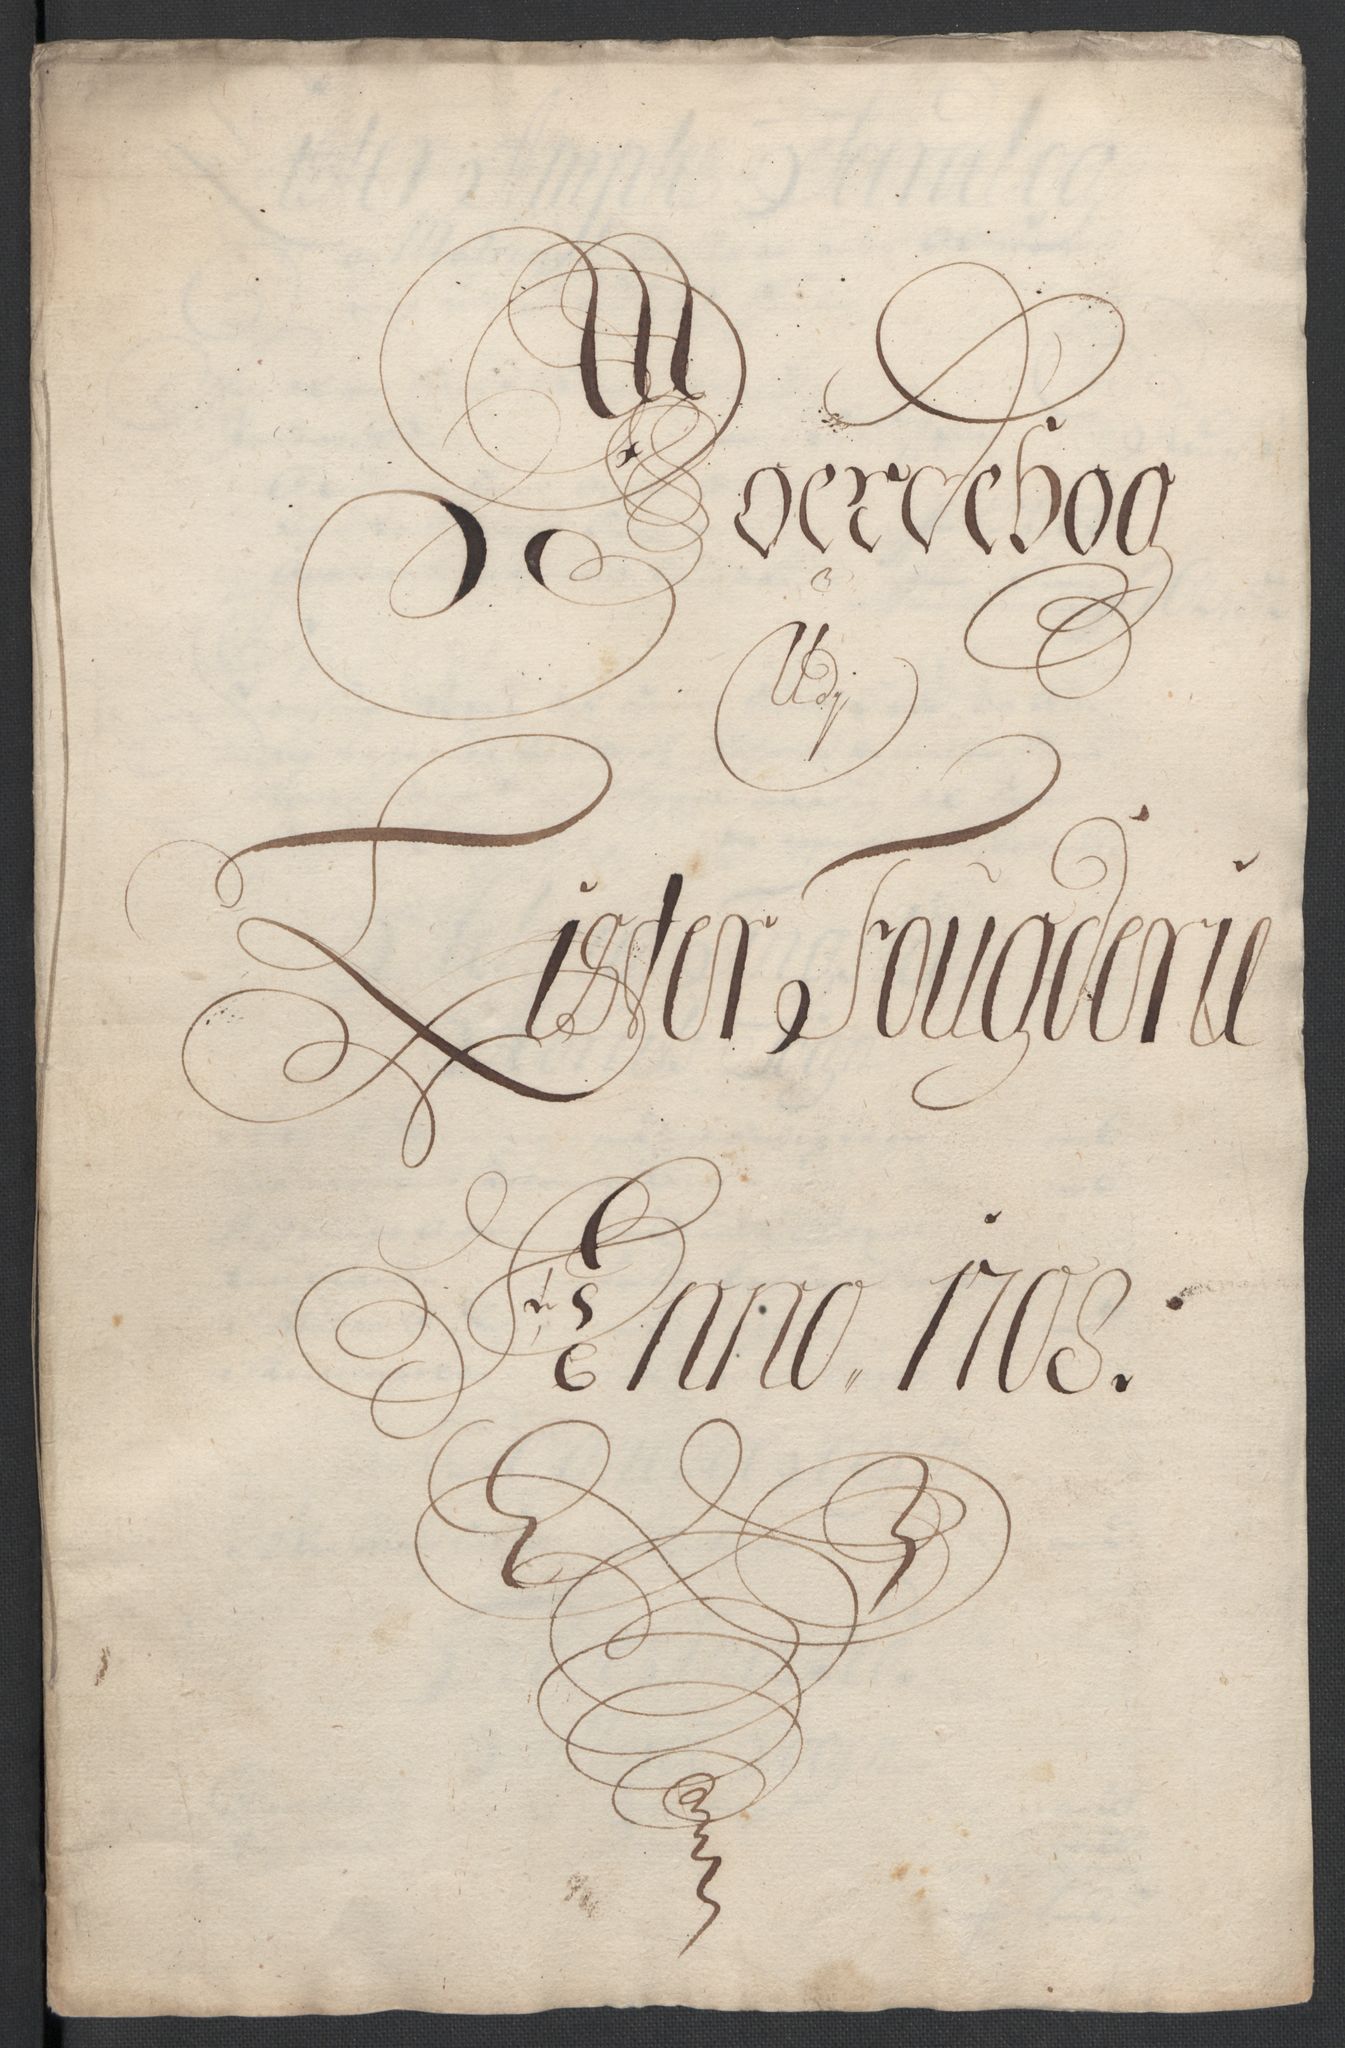 Woerdebog
Udj
Lister Fougderie
Anno 1708.